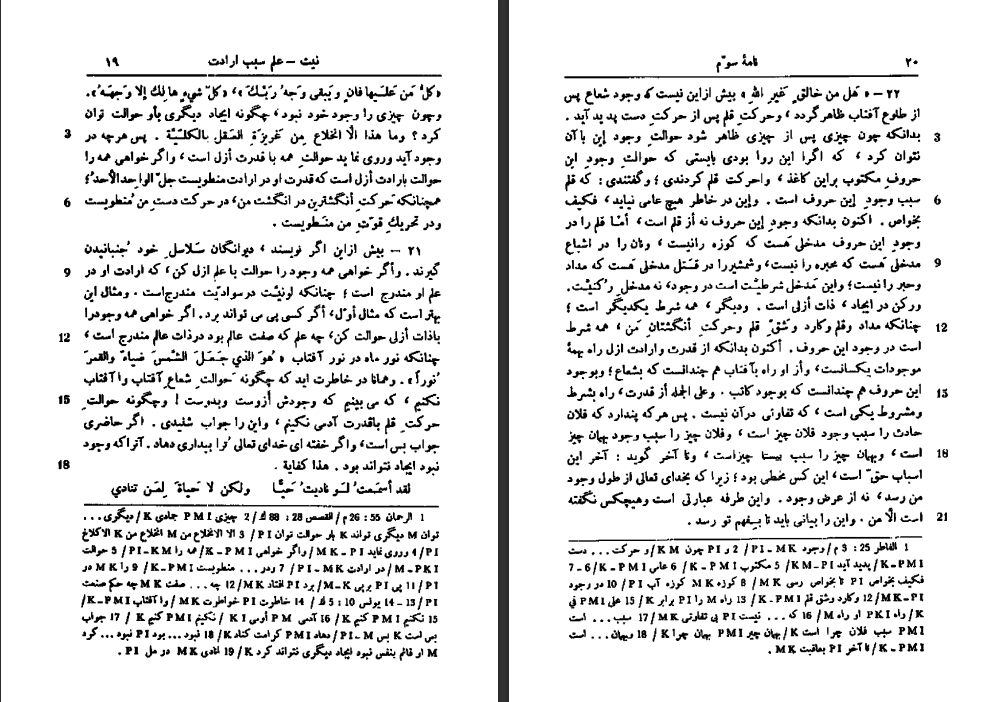 نیت – علم سبب ارادت ۱۹
«کلُّ مَن عَلَیها فانٍ و یَبقی وَجهُ رَبِّكَ»، «کلّ شيءٍ هالِكٌ إلا وَجهَهُ».
وچون چیزی را وجود خود نبود، چگونه ایجاد دیگری بأو حوالت توان
کرد؟ وما هذا الّا انخلاع مِن غَریزةِ العَقلِ بِالکلّیّة . پس هرچه در 3
وجود آید وروی نماید حوالتِ همه با قدرت أزل است، واگر خواهی همه را
حوالت بارادت أزل است که قدرت او در ارادت منطویست جلّ الواحد الأحد؛
همچنانکه حرکتِ أنگشترین در انگشت من، در حرکت دستِ من مُنطویست 6
ودر تحریكِ قوّتِ من منطویست .
۲۱ – بیش ازاین اگر نویسند، دیوانگان سَلاسلِ خود جُنبانیدن
گیرند . وأگر خواهی همه وجود را حوالت با علم ازل کن، که ارادت او در 9
علم او مندرج است؛ چنانکه لونیّت درسوادیّت مندرج‌است . ومثال این
بهتر است که مثال أوّل، أگر کسی پی می تواند برد. اگر خواهی همه وجودرا
باذات أزلی حوالت کن، چه علم که صفت عالم بود درذات عالم مندرج است، 12
چنانکه نور ماه در نور آفتاب «هُوَ الذي جَعَلَ الشَّمسَ ضیاءً والقَمَرَ
نُوراً» . وهمانا در خاطرت اید که چگونه حوالتِ شعاعِ آفتاب وا آفتاب
نکنیم، که می بینیم که وجودش أزوست وبدوست! وچگونه حوالتِ 15
حرکتِ قلم باقدرت آدمی نکنیم، واین را جواب شنیدی . اگر حاضری
جواب بس است، واگر خفته ای خدای تعالی تُرا بیداری دهاد. آنراکه وجود
نبود ایجاد نتواند بود . هذا کفایة . 18
لقد أسمَعتَ لَو نادیتَ حَیًّا ولکن لا حَیاةَ لِمَن تنادي
1 الرحمان 55 : 26 م / القصص 28 : 88 ك / 2 چیزی PMI جمادی K / دیگری...
توان M دیگری تواند K باو حوالت توان PI / 3 الا الانخلاع من M انخلاع من K الاکلاخ
PI / 4 وروی نماید MK - PI / واگر خواهی K - PMI / همه را PI - KM / 5 حوالت
M - PKI / در ارادت PI - MK / 7 ودر... منطویست K - PMI / 9 را MK در
PI / 11 پی PI بر پی K - M / برد PI افتاد MK / 12 چه... صفت MK چه حکم صنعت
PI / 13 – 14 یونس 10 : 5 ك / 14 خاطرت PI خواطرت MK / وا آفتاب K - PMI /
15 نکنیم PMI کنیم K / 16 آدمی PM أومی K I / نکنیم PMI کنیم K / 17 جواب
بس است K بس PI - M / دهاد PMI کرامت کناد K / 18 نبود... بود PI نبود... کرد
M او قائم بنفس نبود ایجاد دیگری نتواند کرد K / 19 المنادی MK در مل PI .
۲۰ نامهٔ سوّم
۲۲ – «هَل من خالقٍ غَیرِ الله» بیش ازاین نیست که وجود شعاع پس
از طلوع آفتاب ظاهرگردد، وحرکتِ قلم پس از حرکتِ دست پدید آید .
بدانکه چون چیزی پس از چیزی ظاهر شود حوالت وجودِ این با آن 3
نتوان کرد، که اگر این روا بودی بایستی که حوالتِ وجودِ این
حروفِ مکتوب براین کاغذ، واحرکت قلم کردندی؛ وگفتندی: که قلم
سبب وجودِ این حروف است . واین در خاطر هیچ عامی نیاید، فکیف 6
بخواص . اکنون بدانکه وجودِ این حروف نه أز قلم است، أمّا قلم را در
وجودِ این حروف مدخلی هَست که کوزه رانیست، ونان را در اشباع
مدخلی هَست که محبره را نیست، وشمشیررا در قَتل مدخلی هَست که مداد 9
وحبر را نیست؛ واین مَدخل شرطیّت است در وجود، نه مدخلِ رُکنیّت.
ورکن در ایجاد، ذات أزلی است . ودیگر، همه شرط یکدیگر است؛
چنانکه مداد وقلم وکارد وشقِّ قلم وحرکتِ أنگشتانِ مَن، همه شرط 12
است در وجود این حروف . أکنون بدانکه از قدرت وارادت ازل راه بهمهٔ
موجودات یکسانست، وأز او راه بآفتاب هم چندانست که بشعاع؛ وبوجود
این حروف هم چندانست که بوجود کاتب . وعلی الجمله از قدرت، راه بشرط 15
ومشروط یکی است، که تفاوتی درآن نیست . پس هرکه پندارد که فلان
حادث را سبب وجود فلان چیز است، وفلان چیز را سبب وجود بهمان چیز
است، وبهمان چیز را سبب بیستا چیزاست، وتا آخر گوید : آخر این 18
اسباب حقّ است، این کس مخطی بود؛ زیرا که بخدای تعالی از طول وجود
می رسد، نه از عرض وجود . واین طرفه عبارتی است وهیچکس نگفته
است الّا من . واین را بیانی باید تا بفهم تو رسد . 21
1 الفاطر 25 : 3 م / وجود PI - MK / 2 و PI چون KM / و حرکت... دست
K - PMI / پدید آید PI - KM / 5 مکتوب K - PMI / 6 عامی K - PMI / 7 – 6
فکیف بخواص PI تا بخواص رسی MK / 8 کوزه MK کوزه آب PI / 10 در وجود
MK - PI / 12 وکارد وشق قلم K - PMI / 13 راه M را PI برابر K / 15 علی PMI فی
K / راه PKI او راه M / 16 که... نیست PI بی تفاوتی MK / 17 سبب... است
PMI سبب فلان چرا است K / بهمان چیز PMI بهمان چرا K / 18 وبهمان... است
K - PMI / تا آخر PI بعاقبت MK .